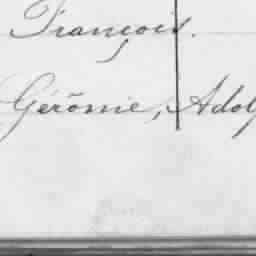 François.
Gérōme, Adol